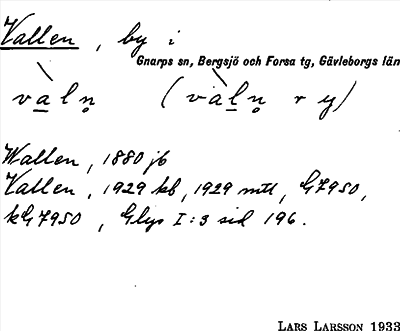 Vallen, by i
Gnarps sn, Bergsjö och Forsa tg, Gävleborgs län
vàln̥ (vàln̥ r y)
Wallen, 1880 jb
Vallen, 1929 kb, 1929 mtl, G7950,
kG7950, Glys I:3 sid 196.
LARS LARSSON 1933